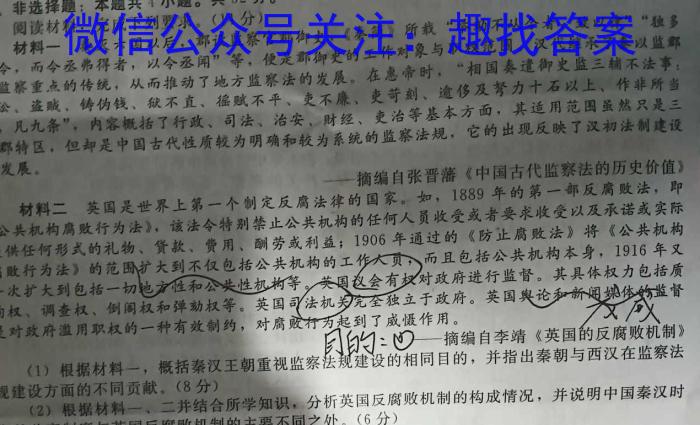 非选择题：本题共
阅读材料
微信公众号关注：趣找答案
材料一
令，而令丞弗得者，以令丞闻”等，便是郡御史的工作对象与
监察重点的传统，从而推动了地方监察法的发展。在惠帝时，“相国奏遣御史监三辅不法事：
讼、盗贼、铸伪钱、狱不直、徭赋不平、吏不廉、吏苛刻、逾侈及弩力十石以上、作非所当
，凡九条”，内容概括了行政、司法、治安、财经、吏治等基本方面，其适用范围虽然只是三
郡特区，但却是中国古代性质较为明确和较为系统的监察法规，它的出现反映了汉初法制建设
发展。
——摘编自张晋藩《中国古代监察法的历史价值》
材料二 英国是世界上第一个制定反腐法律的国家。如，1889 年的第一部反腐败法，即
公共机构腐败行为法》，该法令特别禁止公共机构的任何人员收受或者要求收受以及承诺或实际
供任何形式的礼物、贷款、费用、酬劳或利益；1906 年通过的《防止腐败法》将《公共机构
腐败行为法》的范围扩大到不仅包括公共机构的工作人员，而且包括公共机构本身，1916 年又
次扩大到包括一切地方性和公共性机构等。英国议会有权对政府进行监督。其具体权力包括质
询权、调查权、倒阁权和弹劾权等。英国司法机关完全独立于政府。英国舆论和新闻媒体的监督
是对政府滥用职权的一种有效制约，对腐败行为起到了威慑作用。
权威
目的：
——摘编自李靖《英国的反腐败机制》
（1）根据材料一，概括秦汉王朝重视监察法规建设的相同目的，并指出秦朝与西汉在监察法
规建设方面的不同贡献。（8 分）
（2）根据材料一、二并结合所学知识，分析英国反腐败机制的构成情况，并说明中国秦汉时
主要不同之处。（6 分）